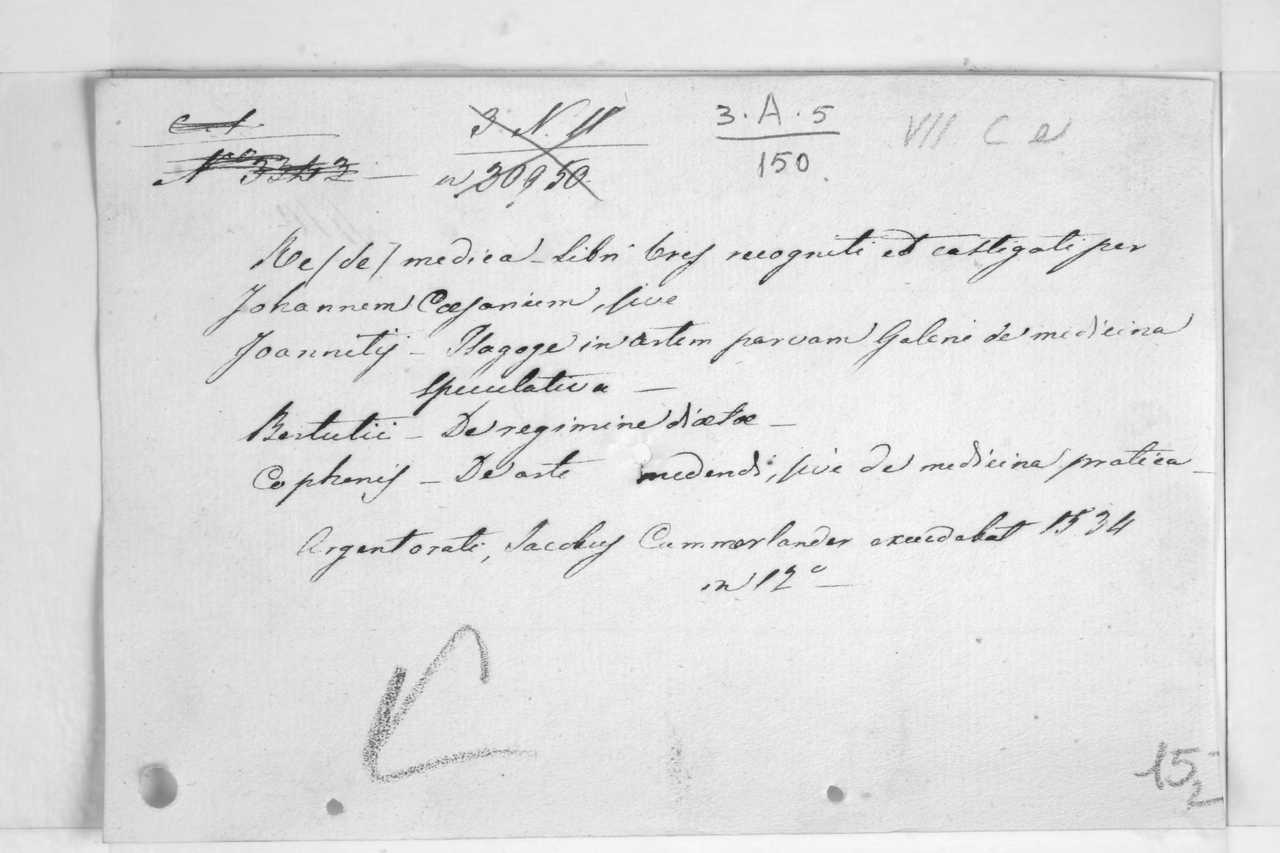 3 . A . 5
VII C e
Nro 3343 —
150
Re (de) medica - Libri tres recogniti et castigati per
Johannem Cæsarium, sive
Joannitii - Isagoge in artem parvam Galeni de medicina
speculativa —
Bertutii - De regimine diætæ -
Cophonis - De arte medendi, sive de medicina pratica -
Argentorati, Jacobus Cammerlander excudebat 1534
in 12° —
15
2